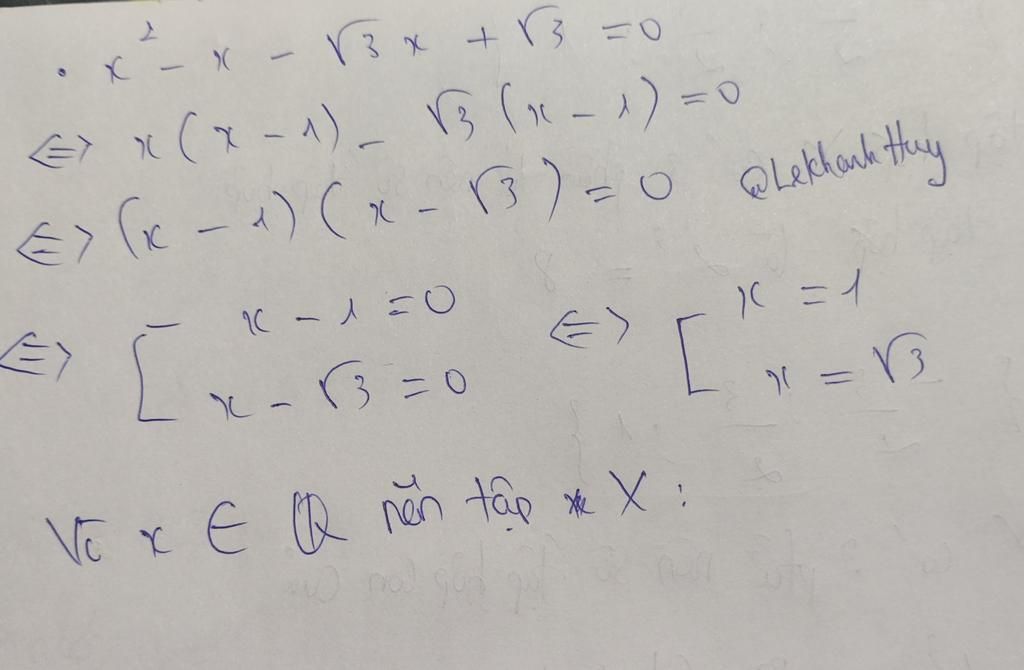 . x² - x - √3 x + √3 = 0
<=> x(x - 1) - √3(x - 1) = 0
<=> (x - 1)(x - √3) = 0 @LeKhanhHuy
<=> [ x - 1 = 0 <=> [ x = 1
x - √3 = 0 x = √3
Vì x ∈ ℚ nên tập X :